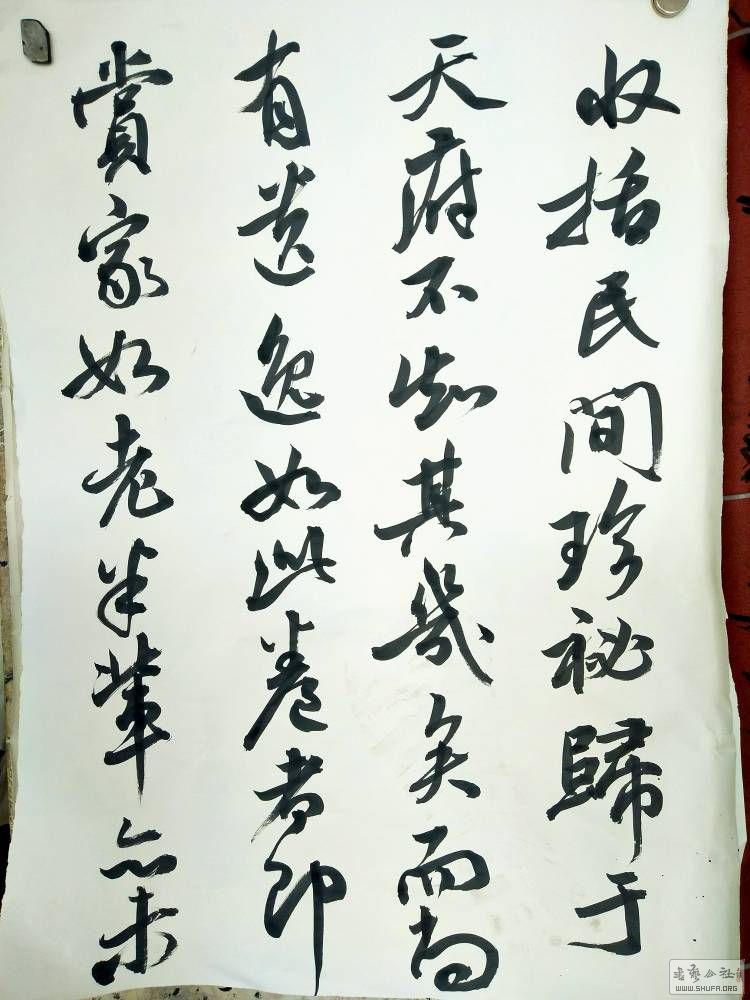 收括民间珍秘歸于
天府不知其幾矣而尚
有遺逸如此卷者即
賞家如老米輩亦未
书艺公社
WWW.SHUFA.ORG